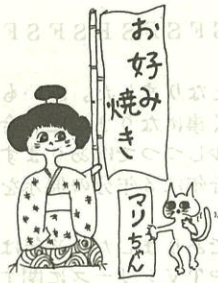 お好み
焼き
マリちゃん